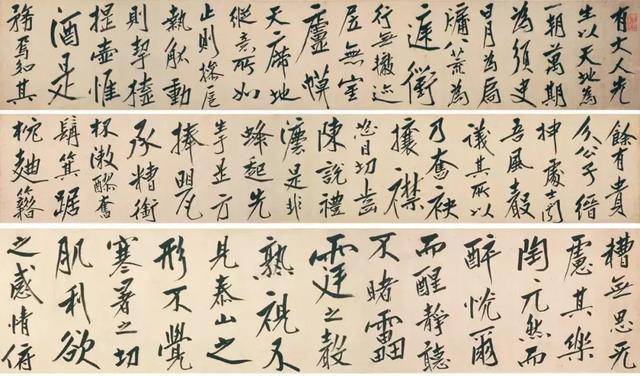 有大人先
生以天地為
一朝萬期
為須臾
日月為扃
牖八荒為
庭衢
行無轍迹
居無室
廬幙
天席地
縱意所如
止則操卮
執觚動
則挈榼
提壺惟
酒是
務焉知其
餘有貴
介公子縉
紳處士聞
吾風聲
議其所以
乃奮袂
攘襟
怒目切齒
陳說禮
灋是非
蜂起先
生于是方
捧甖
承糟銜
杯漱醪奮
髯箕踞
枕麴籍
糟無思无
慮其樂
陶兀然而
醉怳爾
而醒靜聽
不睹雷
霆之聲
熟視不
見泰山之
形不覺
寒暑之切
肌利欲
之感情俯